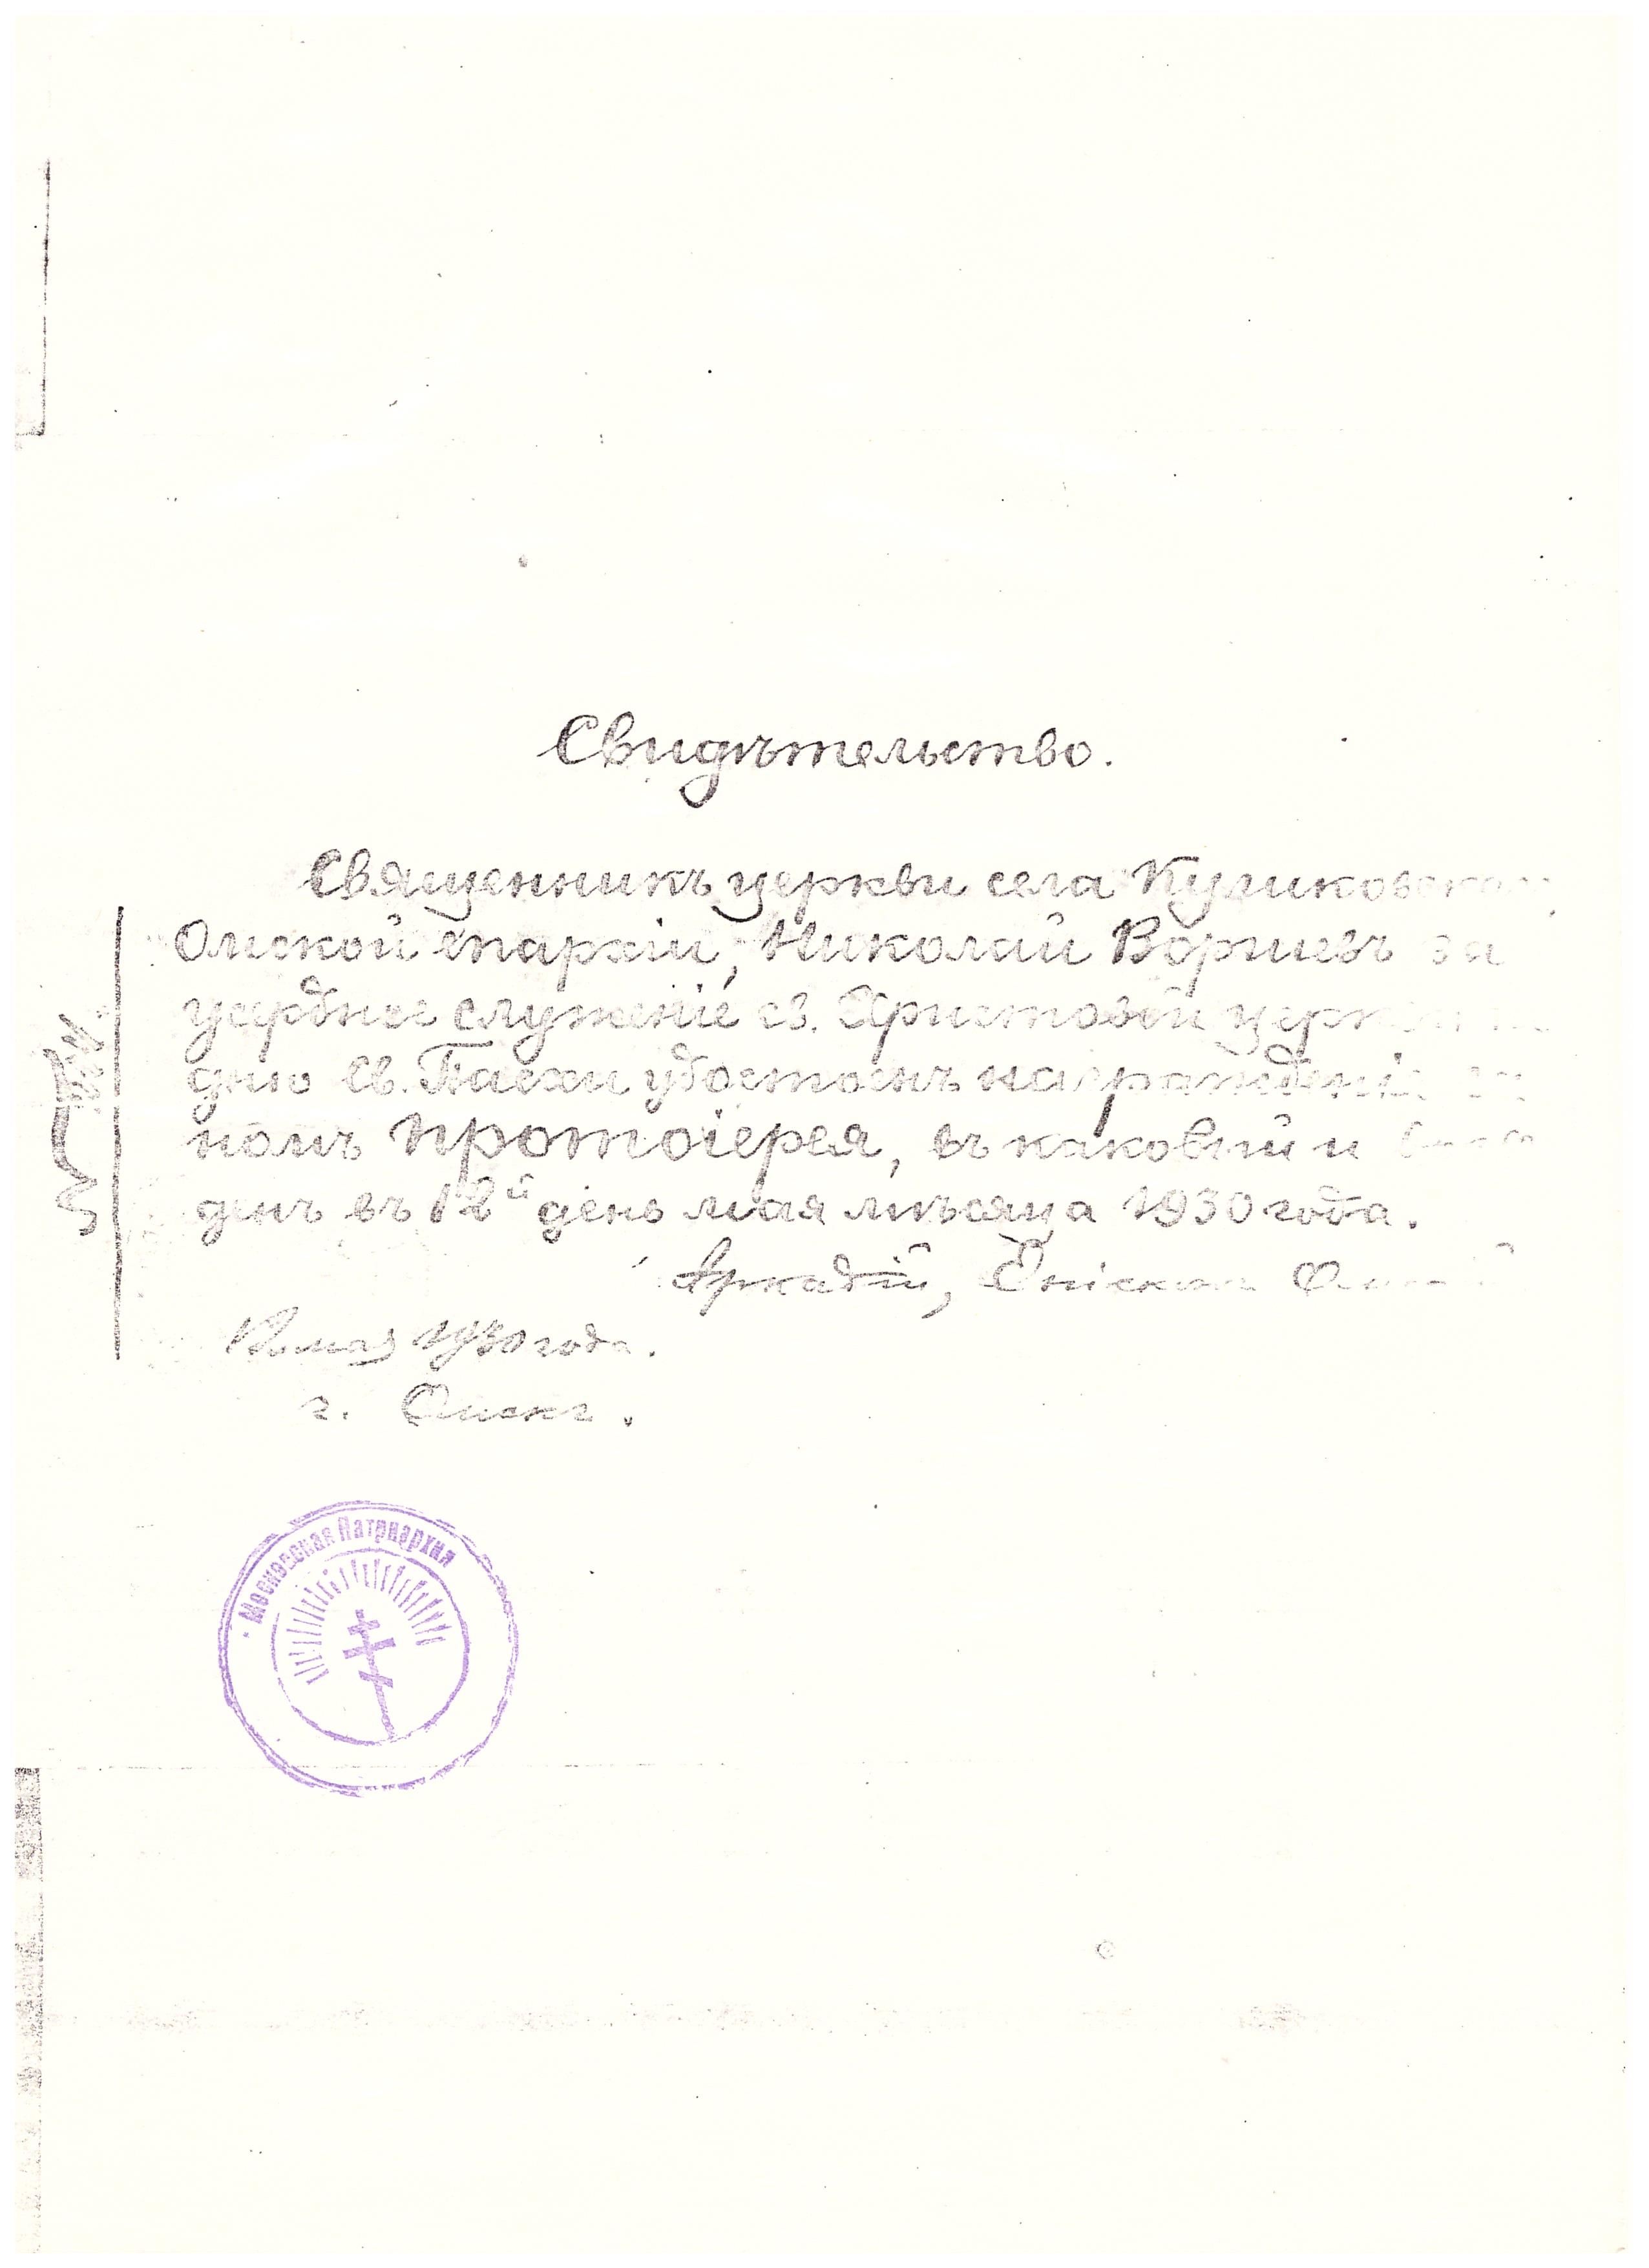 Свидѣтельство.
Священникъ церкви села Куликовска
Омской епархіи, Николай Ворпиевъ за
усердное служеніе св. Христовой церк
дню Св. Пасхи удостоенъ награжденія са
номъ протоіерея, въ каковый и
денъ въ 12й день мая мѣсяца 1930 года.
Аркадій, Епископ
мая 1930 года.
г. Омскъ.
Московская Патриархия